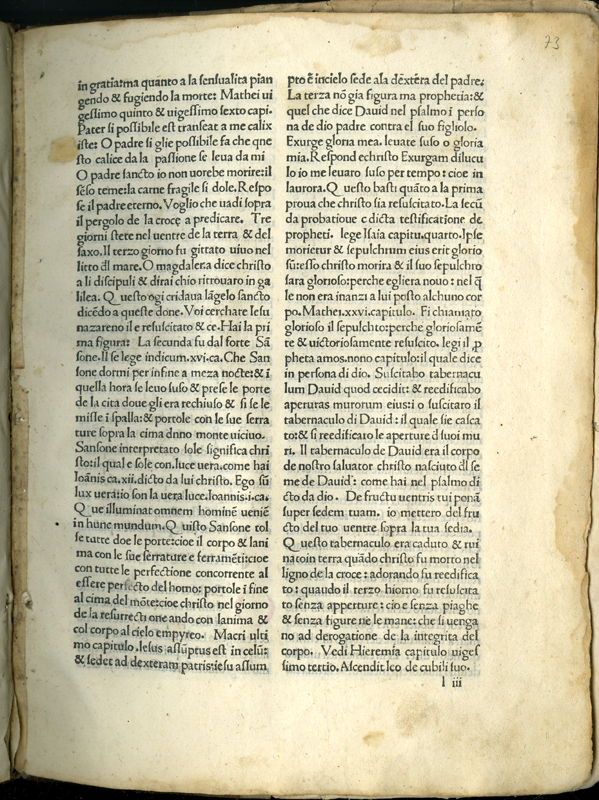 73
in gratia:ma quanto a la sensualita pian
gendo & fugiendo la morte: Mathei ui
gessimo quinto & uigessimo sexto capi.
Pater si possibile est transeat a me calix
iste: O padre si glie possibile fa che qne
sto calice da la passione se leua da mi
O padre sancto io non uorebe morire:il
sēso teme:la carne fragile si dole.Respo
se il padre eterno. Voglio che uadi sopra
il pergolo de la croce a predicare. Tre
giorni stete nel uentre de la terra & del
saxo.Il terzo giorno fu gittato uiuo nel
litto dl mare.O magdalena dice christo
a li discipuli & dirai chio ritrouaro in ga
lilea. Questo ogi cridaua lāgelo sancto
dicēdo a queste done. Voi cerchate Iesu
nazareno il e resuscitato & ce. Hai la pri
ma figura: La secunda fu dal forte Sā
sone.Il se lege indicum.xvi.ca. Che San
sone dormi per infine a meza nocte:& ī
quella hora se leuo suso & prese le porte
de la cita doue gli era rechiuso & si se le
misse ī spalla:& portole con le sue serra
ture sopra la cima dnno monte uiciuo.
Sansone interpretato sole significa chri
sto:il qual e sole con.luce uera.come hai
Ioānis ca.xii.dicto da lui christo. Ego sū
lux uera:io son la uera luce.Ioannis.i.ca.
Que illuminat omnem hominē ueniē
in hunc mundum.Quisto Sansone tol
se tutte doe le porte:cioe il corpo & lani
ma con le sue serrature e ferramēti:cioe
con tutte le perfectione concorrente al
essere perfecto del homo: portole i fine
al cima del mōte:cioe christo nel giorno
de la resurrecti one ando con lanima &
col corpo al cielo empyreo. Macri ulti
mo capitulo.Iesus assūptus est in celū:
& sedet ad dexteram patris:iesu assum
pto ē incielo sede ala dextera del padre:
La terza nō gia figura ma prophetia:&
quel che dice Dauid nel psalmo i perso
na de dio padre contra el suo figliolo.
Exurge gloria mea. leuate suso o gloria
mia.Respond echristo Exurgam dilucu
lo io me leuaro suso per tempo: cioe in
laurora.Questo basti quāto a la prima
proua che christo sia resuscitato.La secū
da probatioue e dicta testificatione de
propheti. lege Isaia capitu.quarto.Ipse
morietur & sepulchrum eius erit glorio
sū:esso christo morira & il suo sepulchro
sara glorioso:perche egliera nouo : nel q̄
le non era inanzi a lui posto alchuno cor
po.Mathei.xxvi.capitulo. Fi chiamato
glorioso il sepulchto:perche gloriosamē
te & uictoriosamente resuscito. legi il ꝓ
pheta amos.nono capitulo:il quale dice
in persona di dio. Suscitabo tabernacu
lum Dauid quod cecidit: & reedificabo
aperuras murorum eius:i o suscitaro il
tabernaculo di Dauid : il quale sie casca
to:& si reedificaro le aperture d suoi mu
ri. Il tabernaculo de Dauid era il corpo
de nostro saluator christo nasciuto dl se
me de Dauid: come hai nel psalmo di
cto da dio . De fructu uentris tui ponā
super sedem tuam. io mettero del fru
cto del tuo uentre sopra la tua sedia.
Questo tabernaculo era caduto & rui
natoin terra quādo christo fu morto nel
ligno de la croce : adorando fu reedifica
to : quando il terzo hiorno fu resuscita
to senza apperture : cio e senza piaghe
& senza figure ne le mane: che si uenga
no ad derogatione de la integrita del
corpo. Vedi Hieremia capitulo uiges
simo tertio. Ascendit leo de cubili suo.
l iii